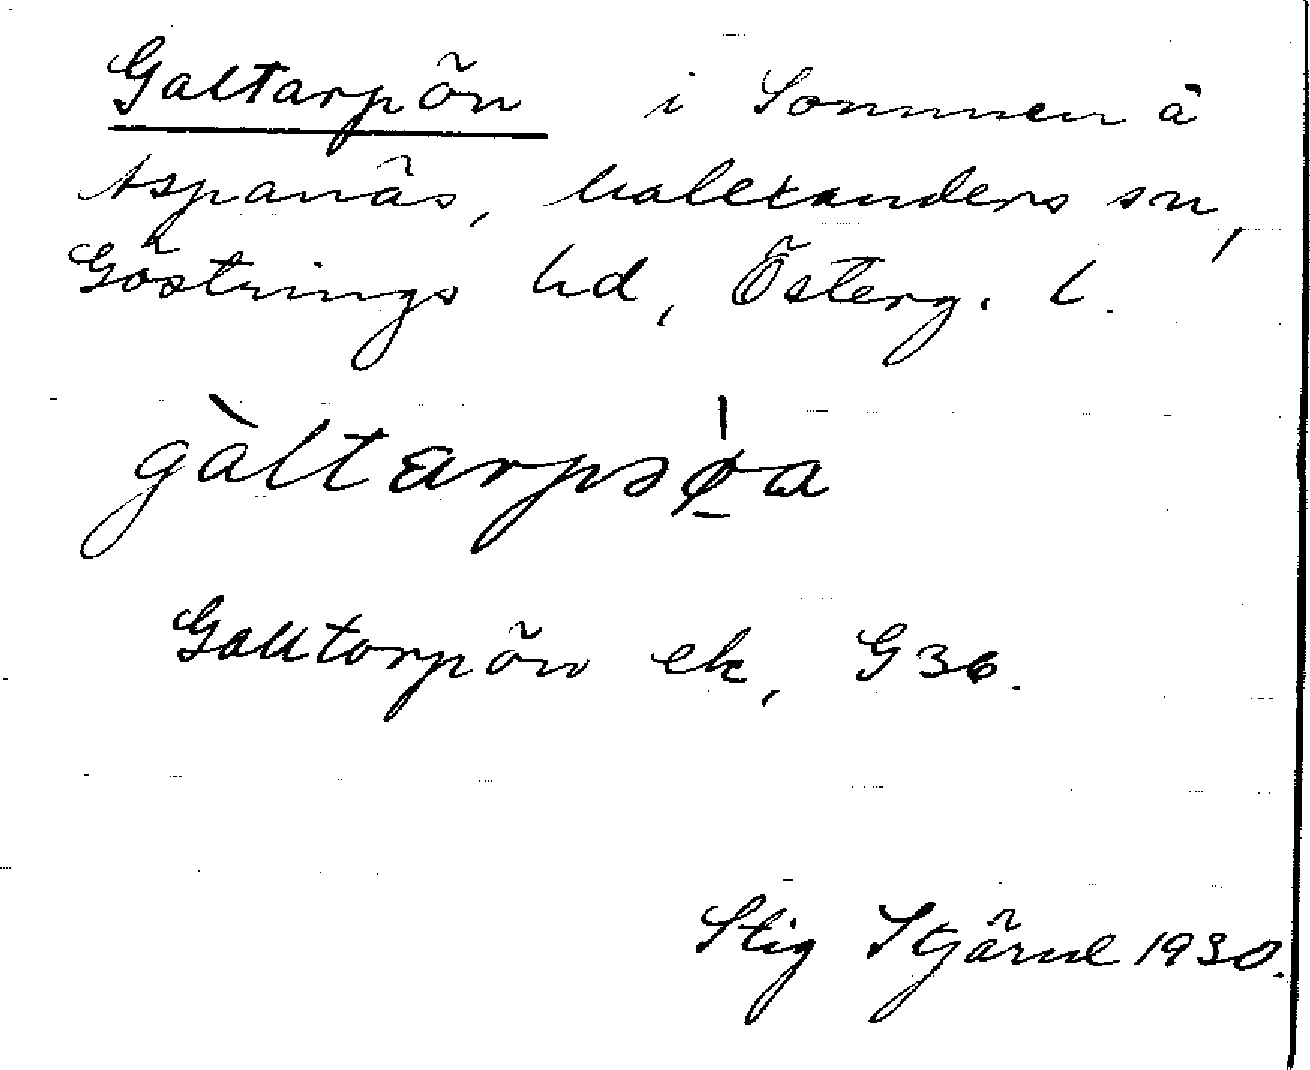 Galtarpön i Sommen å
Aspanäs, Malexanders sn,
Göstrings hd, Österg. l.
gàltarpsø̀a
Galltorpön ek, G36.
Stig Stjärnl 1930.